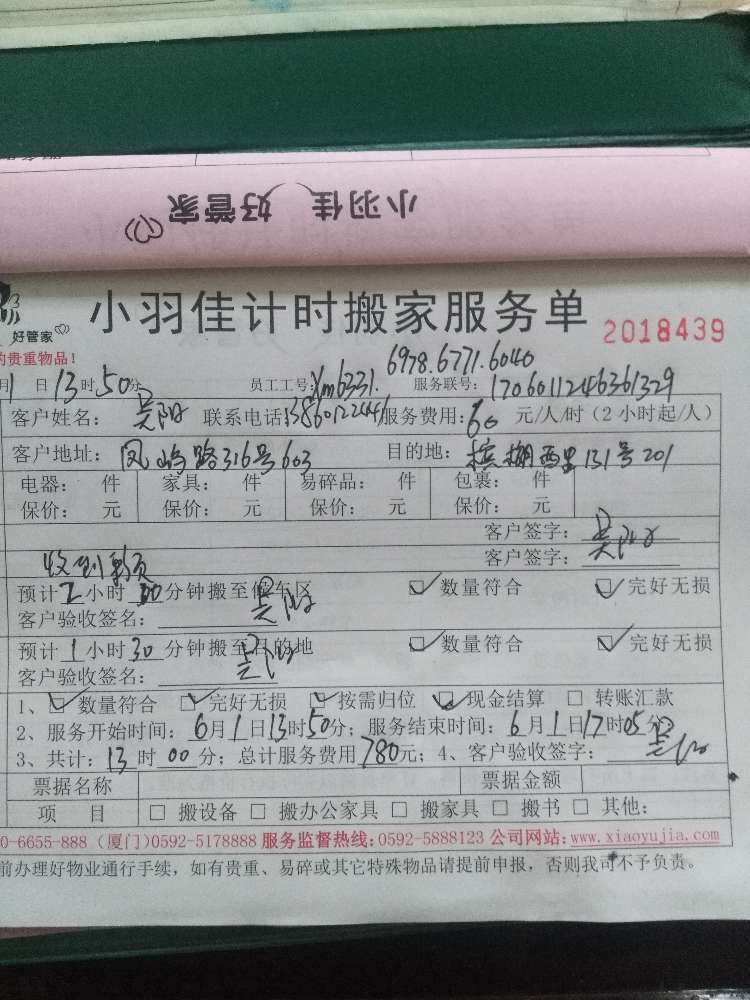 小羽佳 好管家
小羽佳计时搬家服务单 2018439
好管家
的贵重物品!
6978.6771.6040
月1日13时50分 员工工号:Xm6331. 服务联号:1706011246361329
客户姓名: 吴阳 联系电话: 服务费用:60 元/人/时(2小时起/人)
客户地址: 凤屿路316号603 目的地: 槟榔西里131号201
电器: 件 家具: 件 易碎品: 件 包裹: 件
保价: 元 保价: 元 保价: 元 保价: 元
客户签字: 吴阳
客户签字:
收到彩页
预计2小时30分钟搬至停车区 ☑数量符合 ☑完好无损
客户验收签名: 吴阳
预计1小时30分钟搬至目的地 ☑数量符合 ☑完好无损
客户验收签名: 吴阳
1、☑数量符合 ☑完好无损 ☑按需归位 ☑现金结算 □ 转账汇款
2、服务开始时间:6月1日13时50分;服务结束时间:6月1日17时05分
3、共计:13时00分;总计服务费用780元;4、客户验收签字: 吴阳
票据名称 票据金额
项 目 □ 搬设备 □ 搬办公家具 □ 搬家具 □ 搬书 □ 其他:
0-6655-888 (厦门)0592-5178888 服务监督热线:0592-5888123 公司网站:www.xiaoyujia.com
前办理好物业通行手续,如有贵重、易碎或其它特殊物品请提前申报,否则我司不予负责。